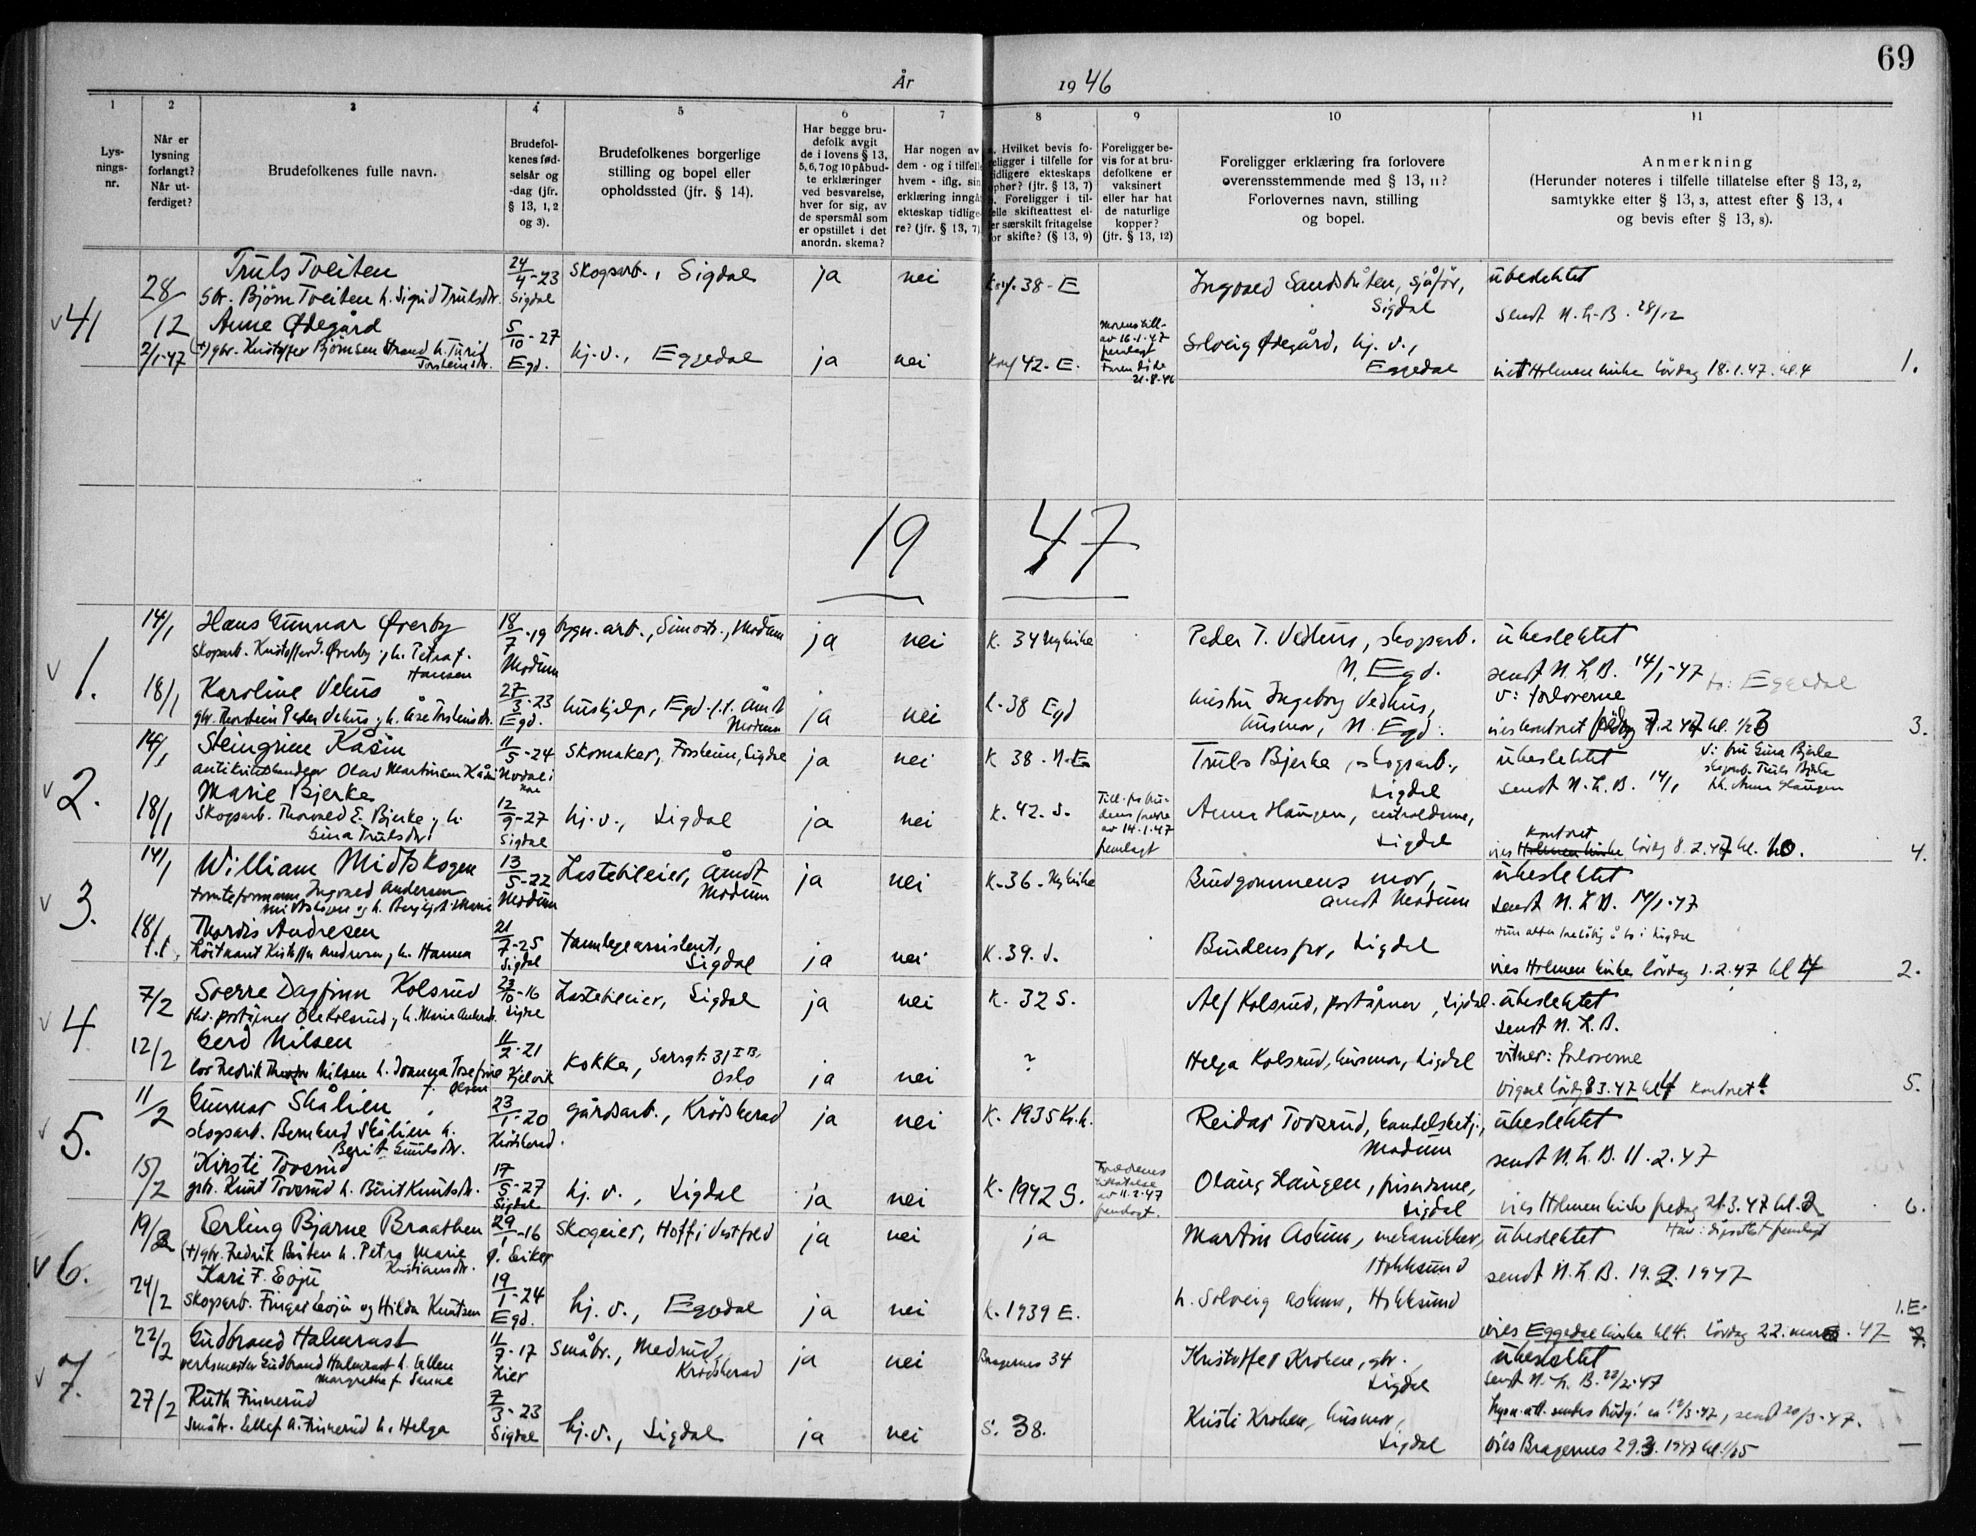 69
År 1946
1
2
3
4
5
6
7
8
9
10
11
Lys-
nings-
nr.
Når er
lysning
forlangt?
Når ut-
ferdiget?
Brudefolkenes fulle navn.
Brudefol-
kenes fød-
selsår og
-dag (jfr.
§ 13, 1, 2
og 3).
Brudefolkenes borgerlige
stilling og bopel eller
opholdssted (jfr. § 14).
Har begge bru-
defolk avgit
de i lovens § 13,
5, 6, 7 og 10 påbud-
te erklæringer
ved besvarelse,
hver for sig, av
de spørsmål som
er opstillet i det
anordn. skema?
Har nogen av
dem - og i tilfelle
hvem - iflg. sin
erklæring inngå
ekteskap tidlige-
re? (jfr. § 13, 7)
Hvilket bevis fo-
religger i tilfelle for
tidligere ekteskaps
ophør? (jfr. § 13, 7)
Foreligger i til-
felle skifteattest el-
ler særskilt fritagelse
for skifte? (§ 13, 9)
Foreligger be-
vis for at bru-
defolkene er
vaksinert
eller har hat
de naturlige
kopper?
(jfr. § 13, 12)
Foreligger erklæring fra forlovere
overensstemmende med § 13, 11?
Forlovernes navn, stilling
og bopel.
Anmerkning
(Herunder noteres i tilfelle tillatelse efter § 13, 2,
samtykke efter § 13, 3, attest efter § 13, 4
og bevis efter § 13, 8).
v 41
28/12
Truls Tveiten
gbr. Bjørn Tveiten h. Sigrid Trulsdtr.
24/4-23
Sigdal
skogsarb., Sigdal
ja
nei
Konf. 38 - E
Ingvald Sandsbråten, sjåfør,
Sigdal
ubeslektet
sendt N.L.B. 28/12
2/1-47
Anne Ødegård
(+) gbr. Kristoffer Bjørnsen Strand h. Turid
Torsteinsdtr.
5/10-27
Egd.
hj.v., Eggedal
ja
nei
Konf 42 - E.
Morens till-
av 16-1-47
fremlagt
Faren døde
21-8-46
Solveig Ødegård, hj.v.,
Eggedal
viet Holmen kirke lørdag 18.1.47. kl. 4
1.
19 47
v 1.
14/1
Hans Gunnar Øverby
skogarb. Kristoffer G. Øverby og h. Petra f.
Hansen
18/7-19
Modum
bygn.arb., Simostr., Modum
ja
nei
K. 34 Nykirke
Peder T. Vehus, skogsarb.
N. Egd.
ubeslektet
sendt N.L.B. 14/1-47
bo: Eggedal
18/1
Karoline Vehus
gbr. Thorstein Peder Vehus og h. Åse Torsteinsdtr.
27/3-23
Egd.
hushjelp, Egd. f.t. Åmot
Modum
ja
nei
K-38 Egd
hustru Ingeborg Vedhus,
husmor, N. Egd.
v: forloverne
vies kontoret fredag 7.2.47 kl. 1/2 3
3.
v 2.
14/1
Steingrim Kåsin
antikvitetshandler Olav Martinsen Kåsin
11/5-24
Nordal i
Nore
skomaker, Forsheim, Sigdal
ja
nei
K 38 - N-E
Truls Bjerke, skogsarb.,
Sigdal
ubeslektet
sendt N.L.B. 14/1
V: fru Gina Bjerke
skogsarb. Truls Bjerke
hh. Anna Haugen
18/1
Marie Bjerke
skogsarb. Thorvald E. Bjerke og h.
Gina Trulsdtr.
12/9-27
Sigdal
hj.v., Sigdal
ja
nei
K. 42. S.
Till. fra bru-
dens foreldre
av 14.1.47
fremlagt
Anna Haugen, centraldame,
Sigdal
kontoret
vies Holmen kirke lørdag 8.2.47 kl.
4.
v 3.
14/1
William Midtskogen
tomteformann Ingvald Andersen
Midtskogen og h. Bergljot Marie
13/5-22
Modum
Lastebileier, Åmot
Modum
ja
nei
K-36 - Nykirke
Brudgommens mor,
Åmot Modum
ubeslektet
sendt N.L.B. 14/1-47
18/1
Thordis Andresen
løitnant Kristoffer Andresen og h. Hanna
21/7-25
Sigdal
tannlegeassistent,
Sigdal
ja
nei
K. 39. S.
Brudens far, Sigdal
Hun akter foreløbig å bo i Sigdal
vies Holmen kirke lørdag 1.2.47 kl 4
2.
v 4
7/2
Sverre Dagfinn Kolsrud
fhv. poståpner Ole Kolsrud og h. Marie Andersdtr.
23/10-16
Sigdal
Lastebileier, Sigdal
ja
nei
K. 32 S.
Alf Kolsrud, poståpner, Sigdal.
ubeslektet
sendt N.L.B.
12/2
Gerd Nilsen
los Fredrik Nilsen h. Joanna Josefine
f. Olsen
11/2-21
Kjelvik
kokke, Sarsgt. 31 I B,
Oslo
ja
nei
?
Helga Kolsrud, husmor, Sigdal
vitner: forloverne
vigsel lørdag 8 3.47 kl 4 kontoret
5.
v 5.
11/2
Gunnar Skålien
skogsarb. Bernhard Skålien h.
Berit Gulsdtr.
23/1-20
Krødsherad.
gårdsarb., Krødsherad
ja
nei
K. 1935 Kr.h.
Reidar Tovsrud, handelsbetj.,
Modum
ubeslektet
sendt N.L.B. 11.2.47
15/2
Kirsti Tovsrud
gbr. Knut Tovsrud h. Berit Knutsdtr.
17/5-27
Sigdal
hj.v., Sigdal
ja
nei
K. 1942 S.
Foreldrenes
tillatelse
av 11.2.47
fremlagt.
Olaug Haugen, frisørdame,
Sigdal
vies Holmen kirke fredag 21.3.47 kl. 2
6.
v 6.
19/2
Erling Bjarne Braathen
(+) gbr. Fredrik Bråten h. Petra Marie
Kristiansdtr.
29/1-16
Ø. Eiker
skogeier, Hoff i Vestfold
ja
nei
ja
Martin Askum, mekaniker,
Hokksund
ubeslektet
sendt N.L.B. 19.2.1947
24/2
Kari F. Eoju
skogsarb. Finger Eoju og Hilda Knutsen
19/1-24
Egd.
hj.v., Eggedal
ja
nei
K. 1939 E.
h. Solveig Askum, Hokksund
vies Eggedal kirke kl 4. lørdag 22. mars. 47
1.E.
v 7.
22/2
Gudbrand Halmrast
verksmester Gudbrand Halmrast h. Ellen
Margrethe f. Sanne
11/9-17
Lier
småbr., Medrud,
Krødsherad
ja
nei
Bragernes 34
Kristoffer Krohn, gbr.,
Sigdal
ubeslektet
sendt N.L.B. 22/2-47
27/2
Ruth Finnerud
småbr. Ellef A. Finnerud h. Helga
7/3-23
Sigdal
hj.v., Sigdal
ja
nei
S. 38.
Kristi Krohn, husmor,
Sigdal
lysn.att. sendes brudg. ca 19/3-47, sendt 20/3-47.
vies Bragernes 29.3.1947 kl. 1/2 5